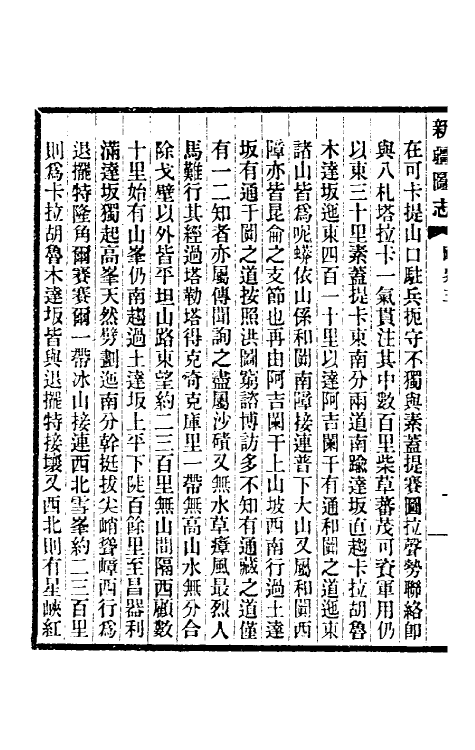 新疆圖志
在可卡提山口駐兵扼守不獨與素蓋提賽圖拉聲勢聯絡卽
與八札塔拉卡一氣貫注其中數百里柴草蕃茂可資軍用仍
以東三十里素蓋提卡東南分兩道南踰達坂直趨卡拉胡魯
木達坂迤東四百一十里以達阿吉闌干有通和闐之道迤東
諸山皆爲呢蟒依山係和闐南障接連普下大山又屬和闐西
障亦皆昆侖之支節也再由阿吉闌干上山坡西南行過土達
坂有通于闐之道按照洪圖蒭諮博訪多不知有通藏之道僅
有一二知者亦屬傳聞詢之盡屬沙磧又無水草瘴風最烈人
馬難行其經過塔勒塔得克奇克庫里一帶無高山水無分合
除戈壁以外皆平坦山路東望約二三百里無山間隔西顧數
十里始有山峯仍南趨過土達坂上平下陡百餘里至昌器利
滿達坂獨起高峯天然劈劃迤南分幹挺拔尖峭聳嶂西行爲
退擺特隆角爾賽賽爾一帶冰山接連西北雪峯約二三百里
則爲卡拉胡魯木達坂皆與退擺特接壤又西北則有星峽紅